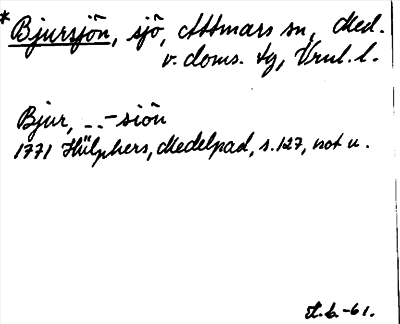 * Bjursjön, sjö, Attmars sn, Med.
v. doms. tg, Vrnl. l.
Bjur, _ _ - siön
1771 Hülphers, Medelpad, s. 127, not u.
-61.